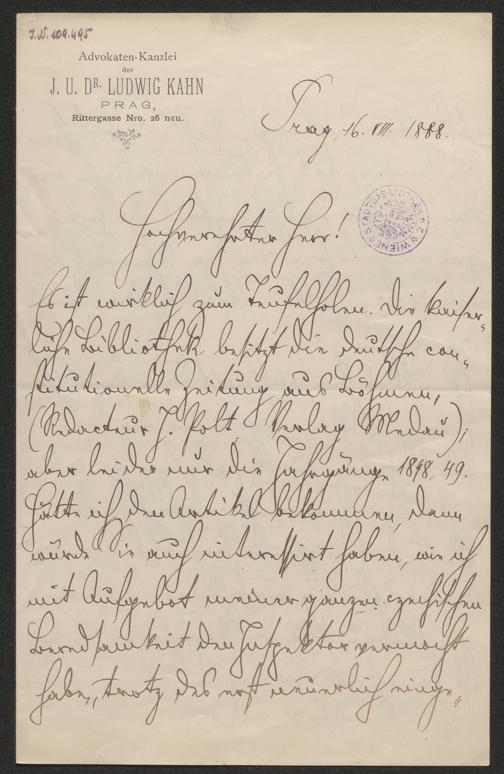 J.N. 109.495
Advokaten-Kanzlei
des
J. U. DR. LUDWIG KAHN
PRAG,
Rittergasse Nro. 26 neu.
Prag, 16. VIII. 1888.
Hochverehrter Herr!
Es ist wirklich zum Teufelholen. Die kaiser-
liche Bibliothek besitzt die deutsche con-
stitutionelle Zeitung aus Böhmen,
(Redacteur J. Polt, Verlag Medau);
aber leider nur die Jahrgänge 1848, 49.
Hätte ich den Artikel bekommen, dann
würde Sie auch interessirt haben, wie ich
mit Aufgebot meiner ganzen czechischen
Beredsamkeit den Inspektor vermocht
habe, trotz des erst neuerlich einge-